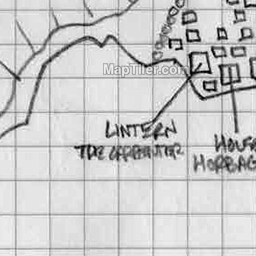 MapTiler.com
LINTERN
THE CARPENTER
HOUSE
HORBAG